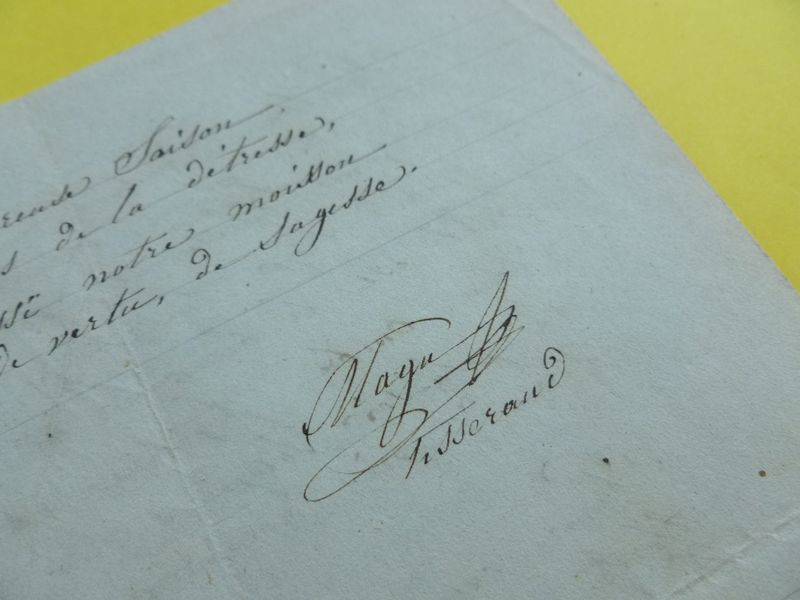 reuse Saison
s de la détresse,
ssé notre moisson
de vertu, de sagesse.
Magu
tisserand